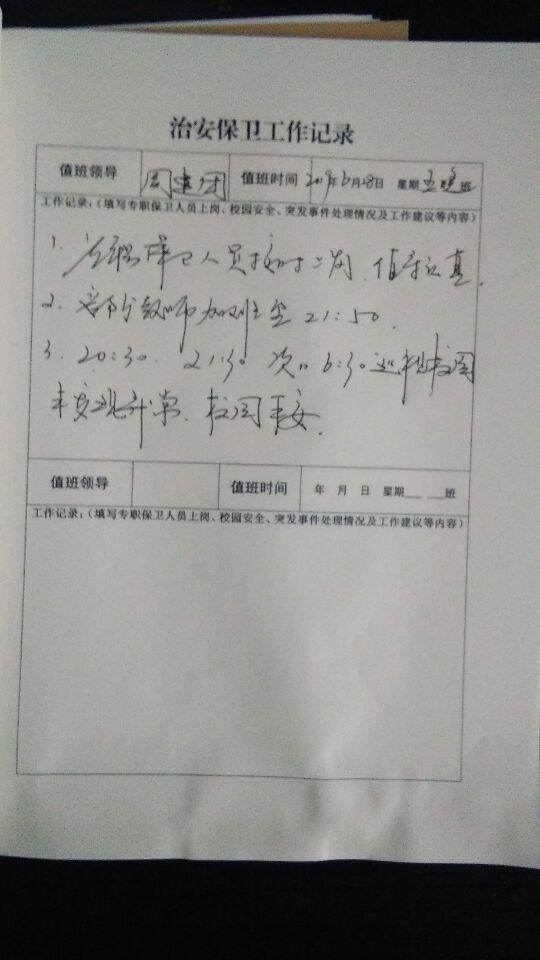 治安保卫工作记录
值班领导 周建 值班时间 2019年6月28日 星期五晚班
工作记录：（填写专职保卫人员上岗、校园安全、突发事件处理情况及工作建议等内容）
1. 专职保卫人员按时上岗、值守认真.
2. 部分教师加班至21:50.
3. 20:30. 21:30 次日6:30巡逻校园
未发现异常. 校园平安.
值班领导 值班时间 年 月 日 星期___ ___班
工作记录：（填写专职保卫人员上岗、校园安全、突发事件处理情况及工作建议等内容）